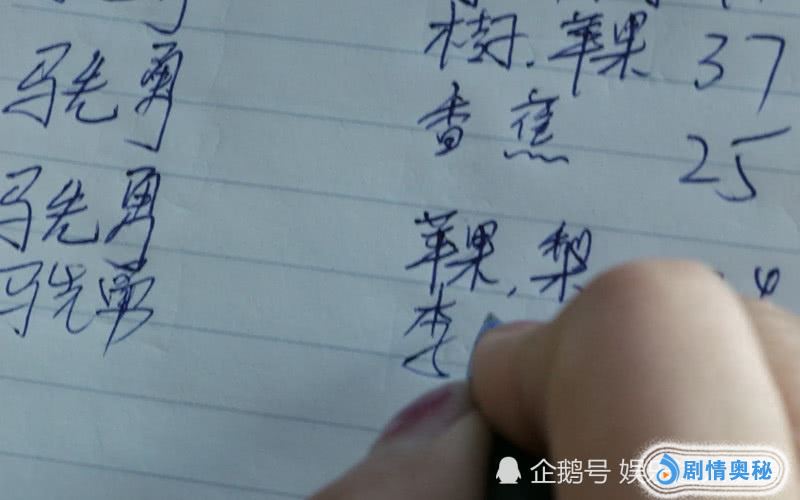 樹.苹果 37
马先勇 香蕉 25
马先勇 苹果,梨
马先勇
企鹅号 娱
剧情奥秘